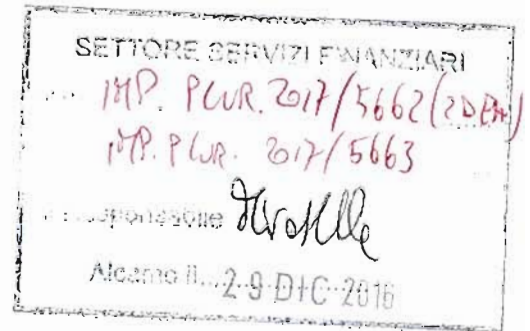 SETTORE SERVIZI FINANZIARI
IMP. PLUR. 2017/5662
IMP. PLUR. 2017/5663
Responsabile
Alcamo lì... 29 DIC 2016